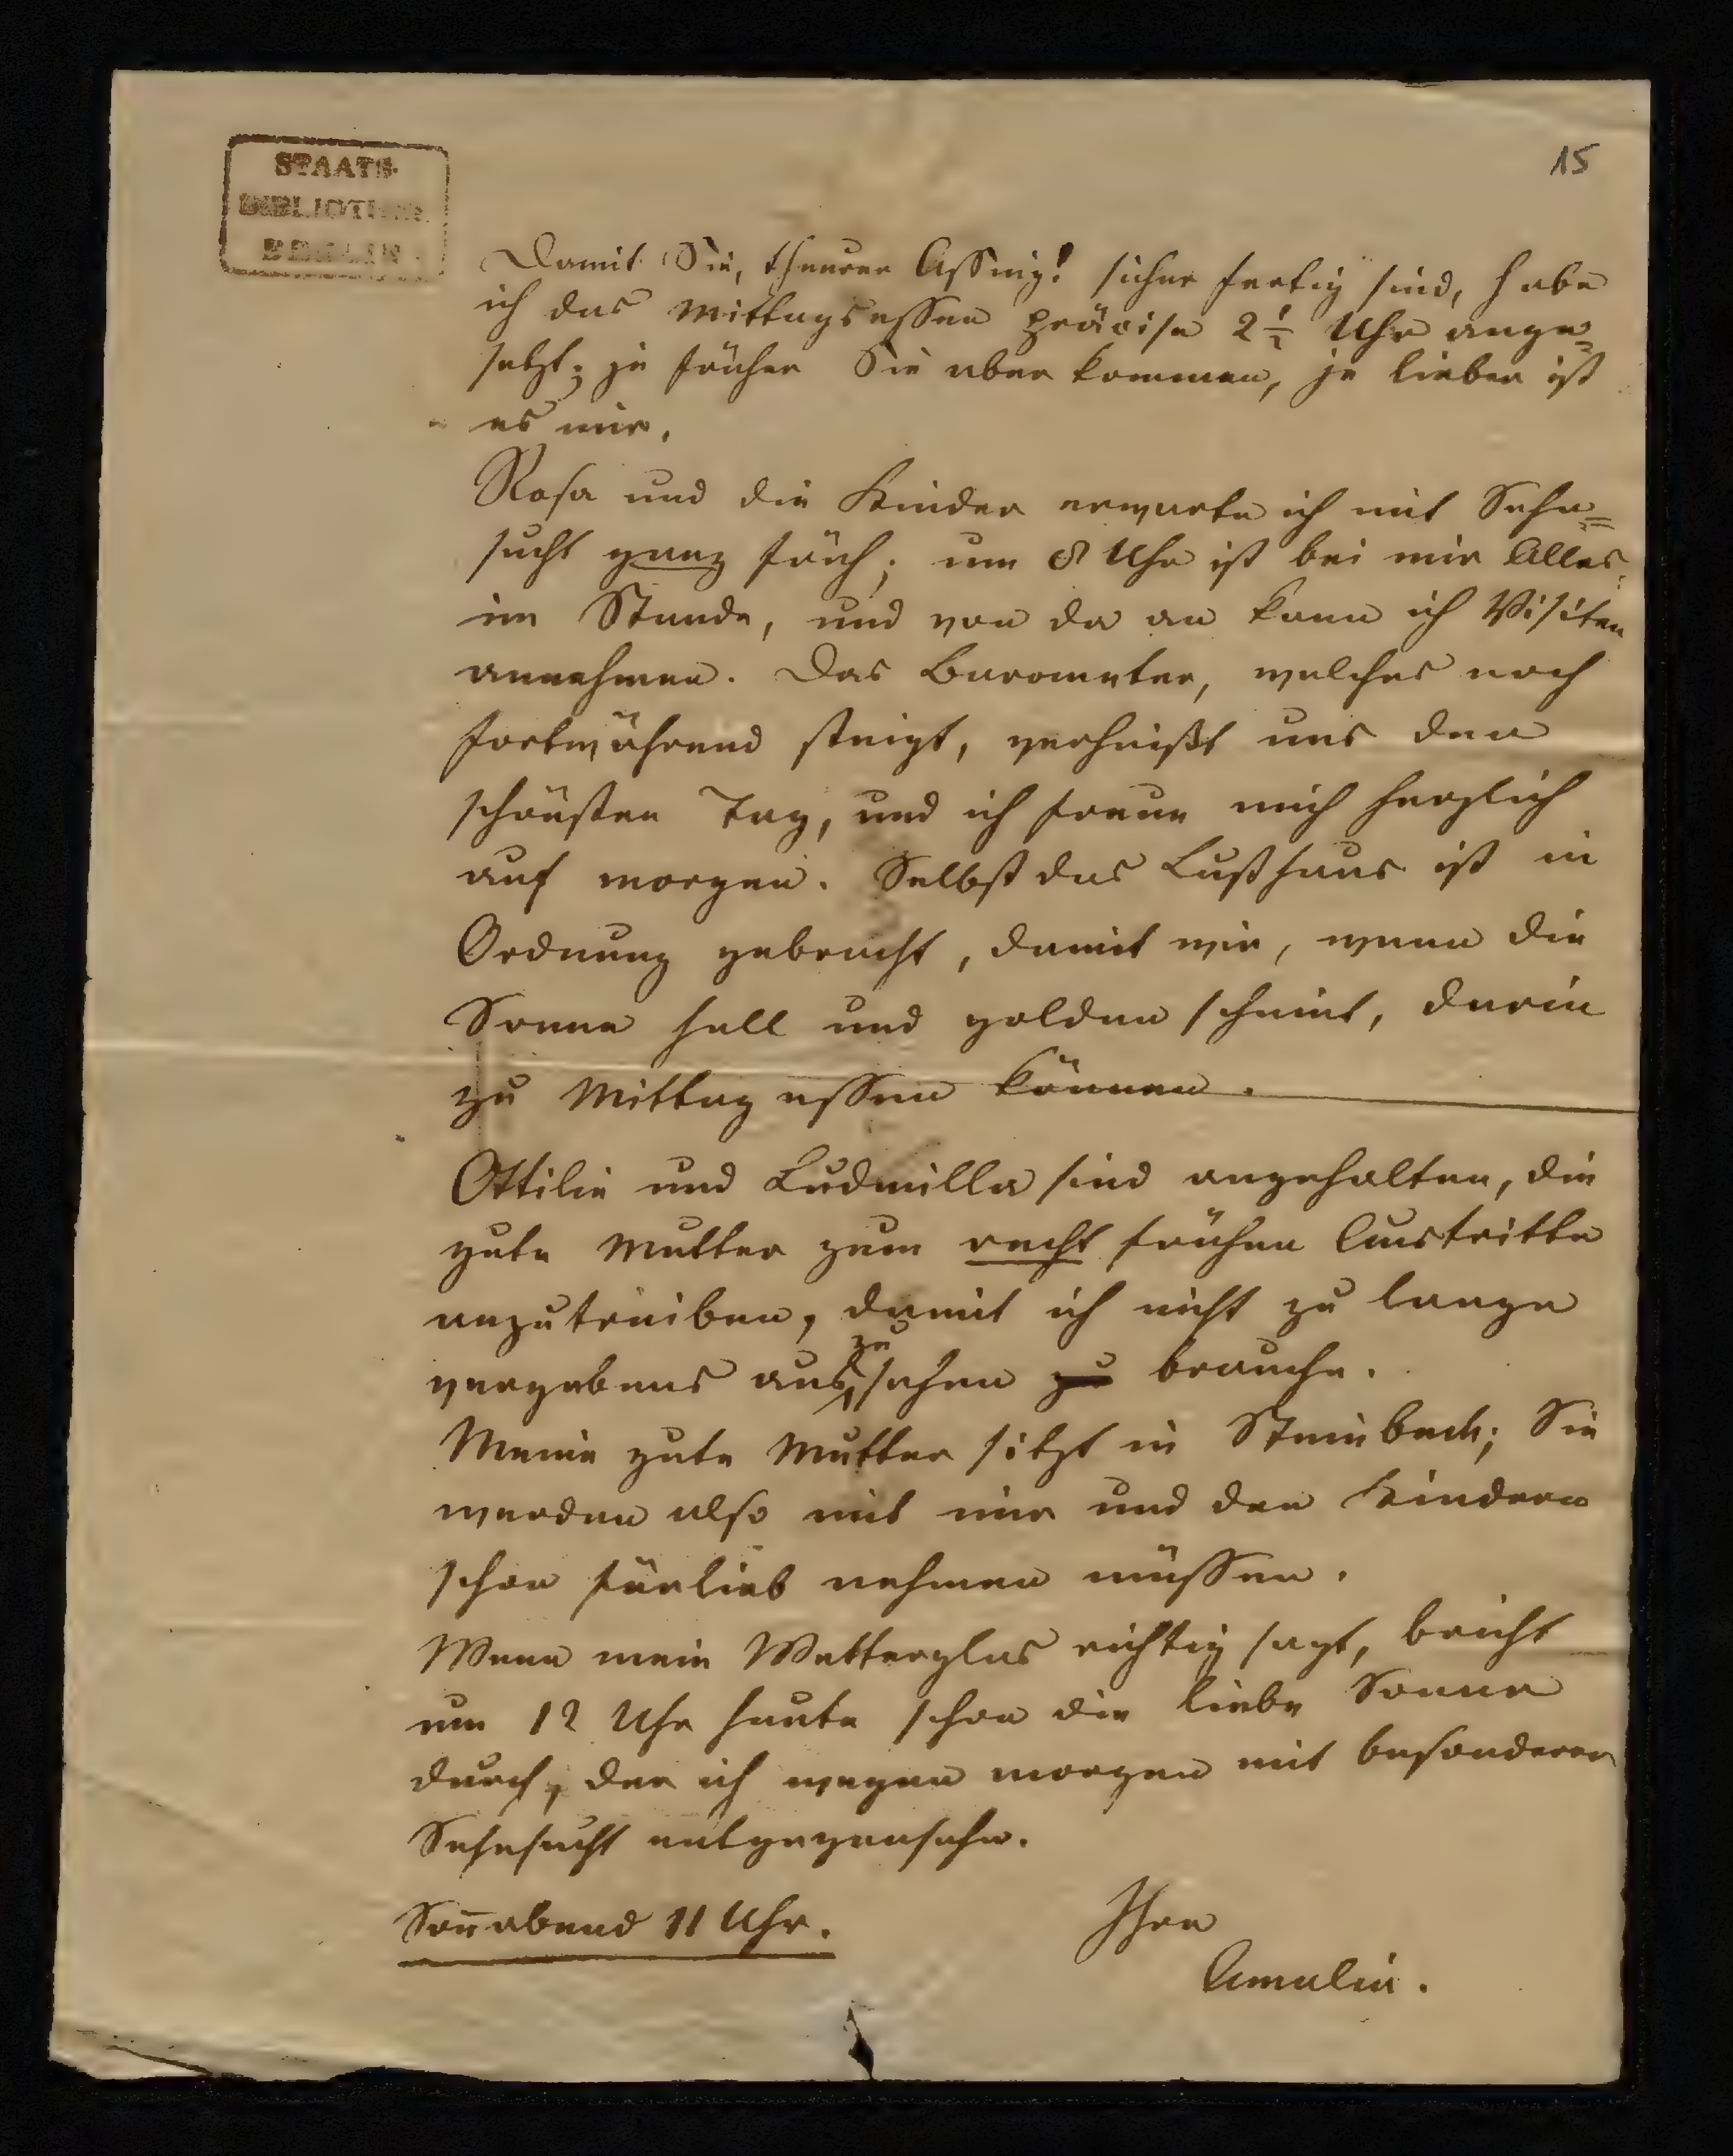 15
STAATS-
BIBLIOTHEK
BERLIN
Damit Sie, theurer Assing! sicher fertig sind, habe
ich das Mittagsessen präcise 2 1/2 Uhr ange=
setzt; je früher Sie aber kommen, je lieber ist
es mir.
Rosa und die Kinder erwarte ich mit Sehn=
sucht ganz früh; um 8 Uhr ist bei mir Alles
im Stande, und von da an kann ich Visiten
annehmen. Das Barometer, welches noch
fortwährend steigt, verheißt uns den
schönsten Tag, und ich freue mich herzlich
auf morgen. Selbst das Lusthaus ist in
Ordnung gebracht, damit wir, wenn die
Sonne hell und golden scheint, darin
zu Mittag essen können.
Ottilie und Ludmilla sind angehalten, die
gute Mutter zum recht frühen Austritte
anzutreiben, damit ich nicht zu lange
zu
vergebens aussehen zu brauche.
Meine gute Mutter sitzt in Steinbeck; Sie
werden also mit mir und den Kindern
schon fürlieb nehmen müssen.
Wenn mein Wetterglas richtig sagt, bricht
um 12 Uhr heute schon die liebe Sonne
durch, der ich wegen morgen mit besonderer
Sehnsucht entgegensehe.
Son̅abend 11 Uhr.
Ihre
Amalie.